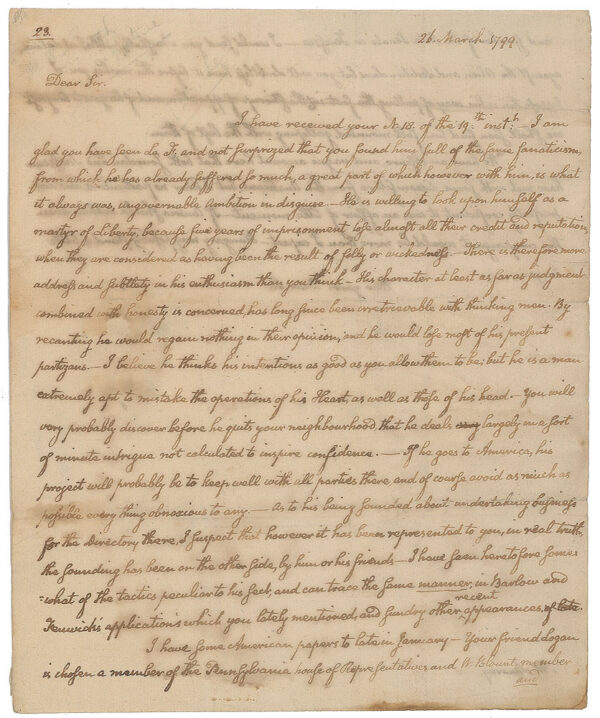 23.
26. March 1799
Dear Sir.
I have received your N. 18. of the 19th. inst:— I am
glad you have seen de F. and not surprized that you found him full of the same fanaticism,
from which he has already suffered so much, a great part of which however with him, is what
it always was, ungovernable Ambition in disguise.— He is willing to look upon himself as a
martyr of Liberty, because five years of imprisonment lose almost all their credit and reputation,
when they are considered as having been the result of folly or wickedness.— There is therefore more
address and subtlety in his enthusiasm than you think— His character at least as far as judgment
combined with honesty is concerned, has long since been irretrievable with thinking men. By
recanting he would regain nothing in their opinion, and he would lose most of his present
partizans.— I believe he thinks his intentions as good as you allow them to be; but he is a man
extremely apt to mistake the operations of his Heart, as well as those of his head.— You will
very probably discover before he quits your neighbourhood, that he deals largely in a sort
of minute intrigue not calculated to inspire confidence.— If he goes to America, his
project will probably be to keep well with all parties there, and of course avoid as much as
possible every thing obnoxious to any.— As to his being sounded about undertaking business
for the Directory there, I suspect that however it has been represented to you, in real truth,
the sounding has been on the other side, by him or his friends— I have seen heretofore some
=what of the tactics peculiar to his sect, and can trace the same manner, in Barlow and
Fenwick's applications which you lately mentioned, and sundry other recent appearances, of late.
I have some American papers to late in January— Your friend Logan
is chosen a member of the Pennsylvania house of Representatives and W. Blount, member
and